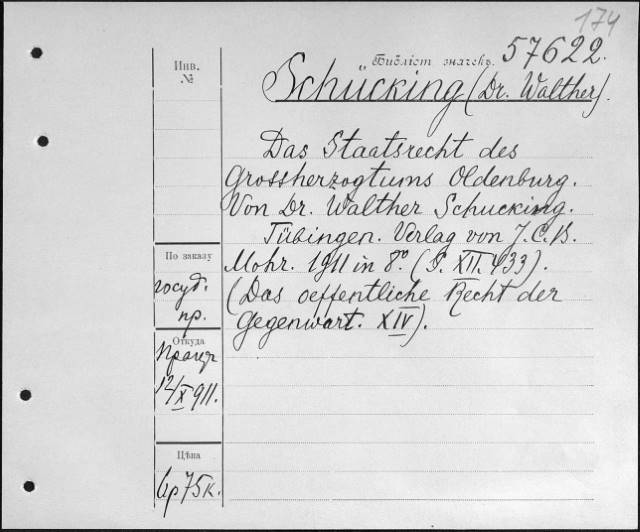 174
Библіот. значекъ. 57622.
Инв.
№
Schücking (Dr. Walther).
Das Staatsrecht des
Grossherzogtums Oldenburg.
Von Dr. Walther Schucking.
Tübingen. Verlag von J. C. B.
Mohr. 1911 in 8º. (S. XII. 433).
(Das oeffentliche Recht der
Gegenwart. XIV).
По заказу
госуд.
пр.
Откуда
12/X 911.
Цѣна
6р 75к.